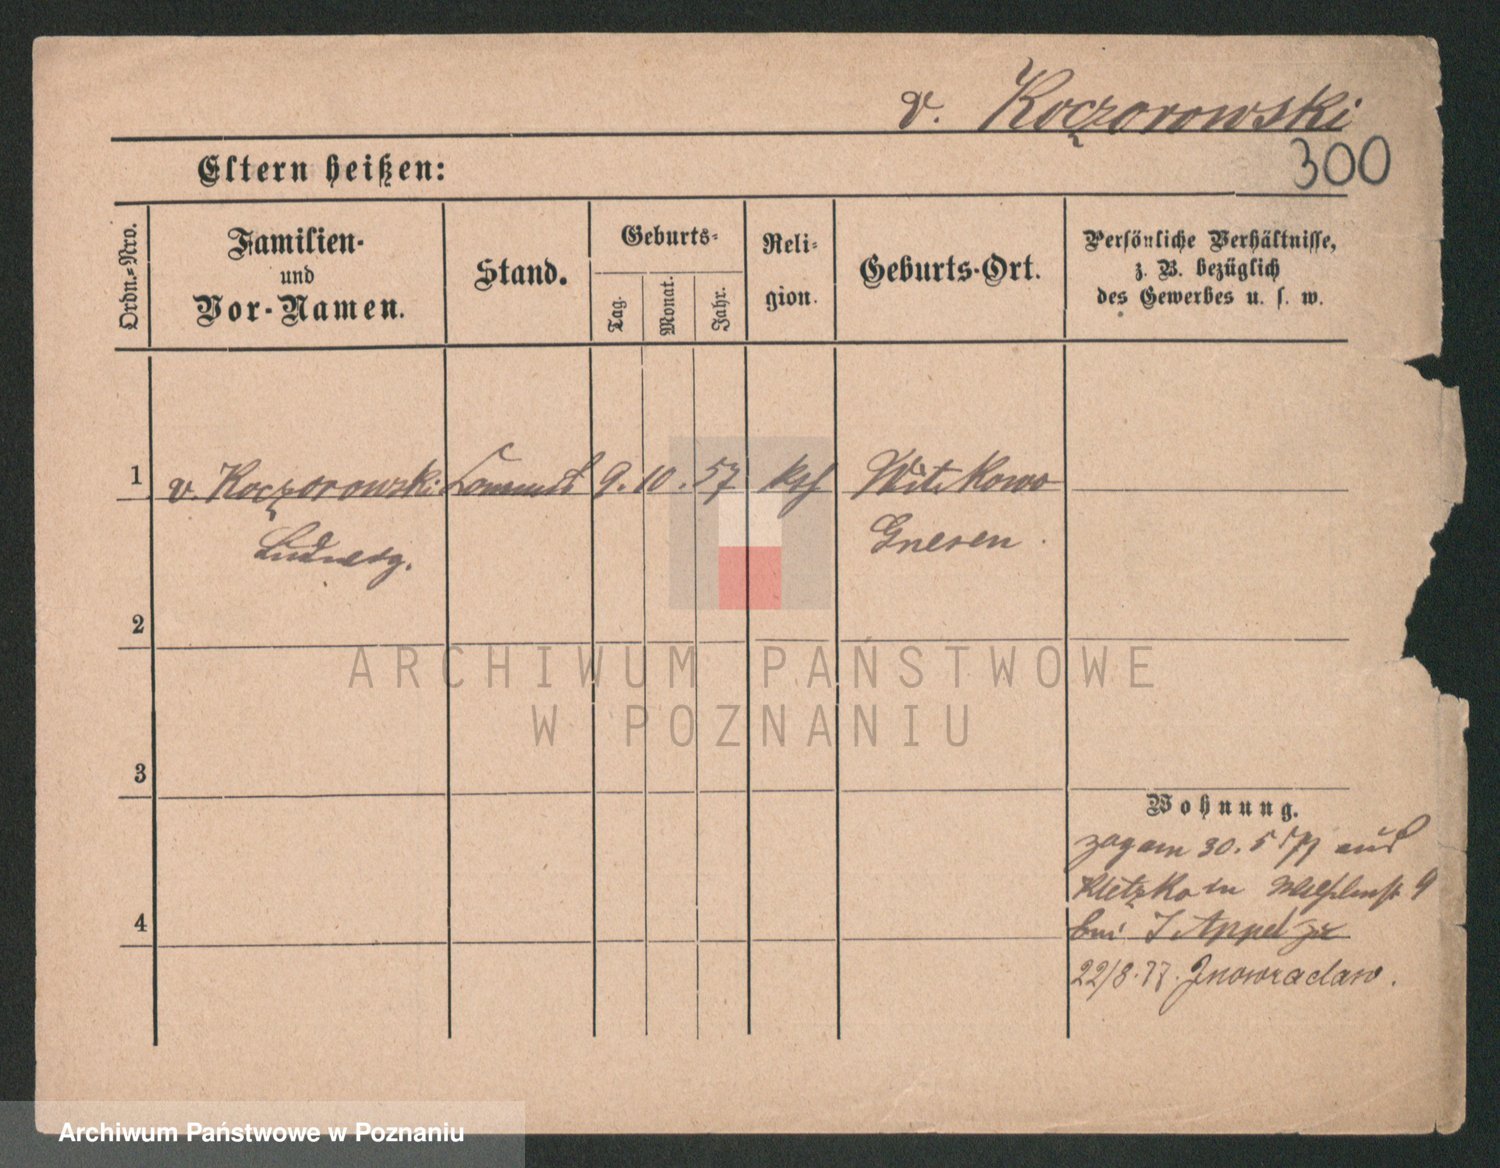 v. Koczorowski
300
Eltern heißen:
Ordn.-Nro.
Familien-
und
Vor-Namen.
Stand.
Geburts-
Tag.
Monat.
Jahr.
Reli-
gion.
Geburts-Ort.
Persönliche Verhältnisse,
z. B. bezüglich
des Gewerbes u. s. w.
1 v. Koczorowski Commis 9. 10. 57 kth Witkowo
Ludwig. Gnesen.
2
3
4
Wohnung.
zog am 30. 5 77 aus
Kletzko in 9
bei J. Appel zu
22/8. 77. Inowraclaw.
ARCHIWUM PAŃSTWOWE
W POZNANIU
Archiwum Państwowe w Poznaniu